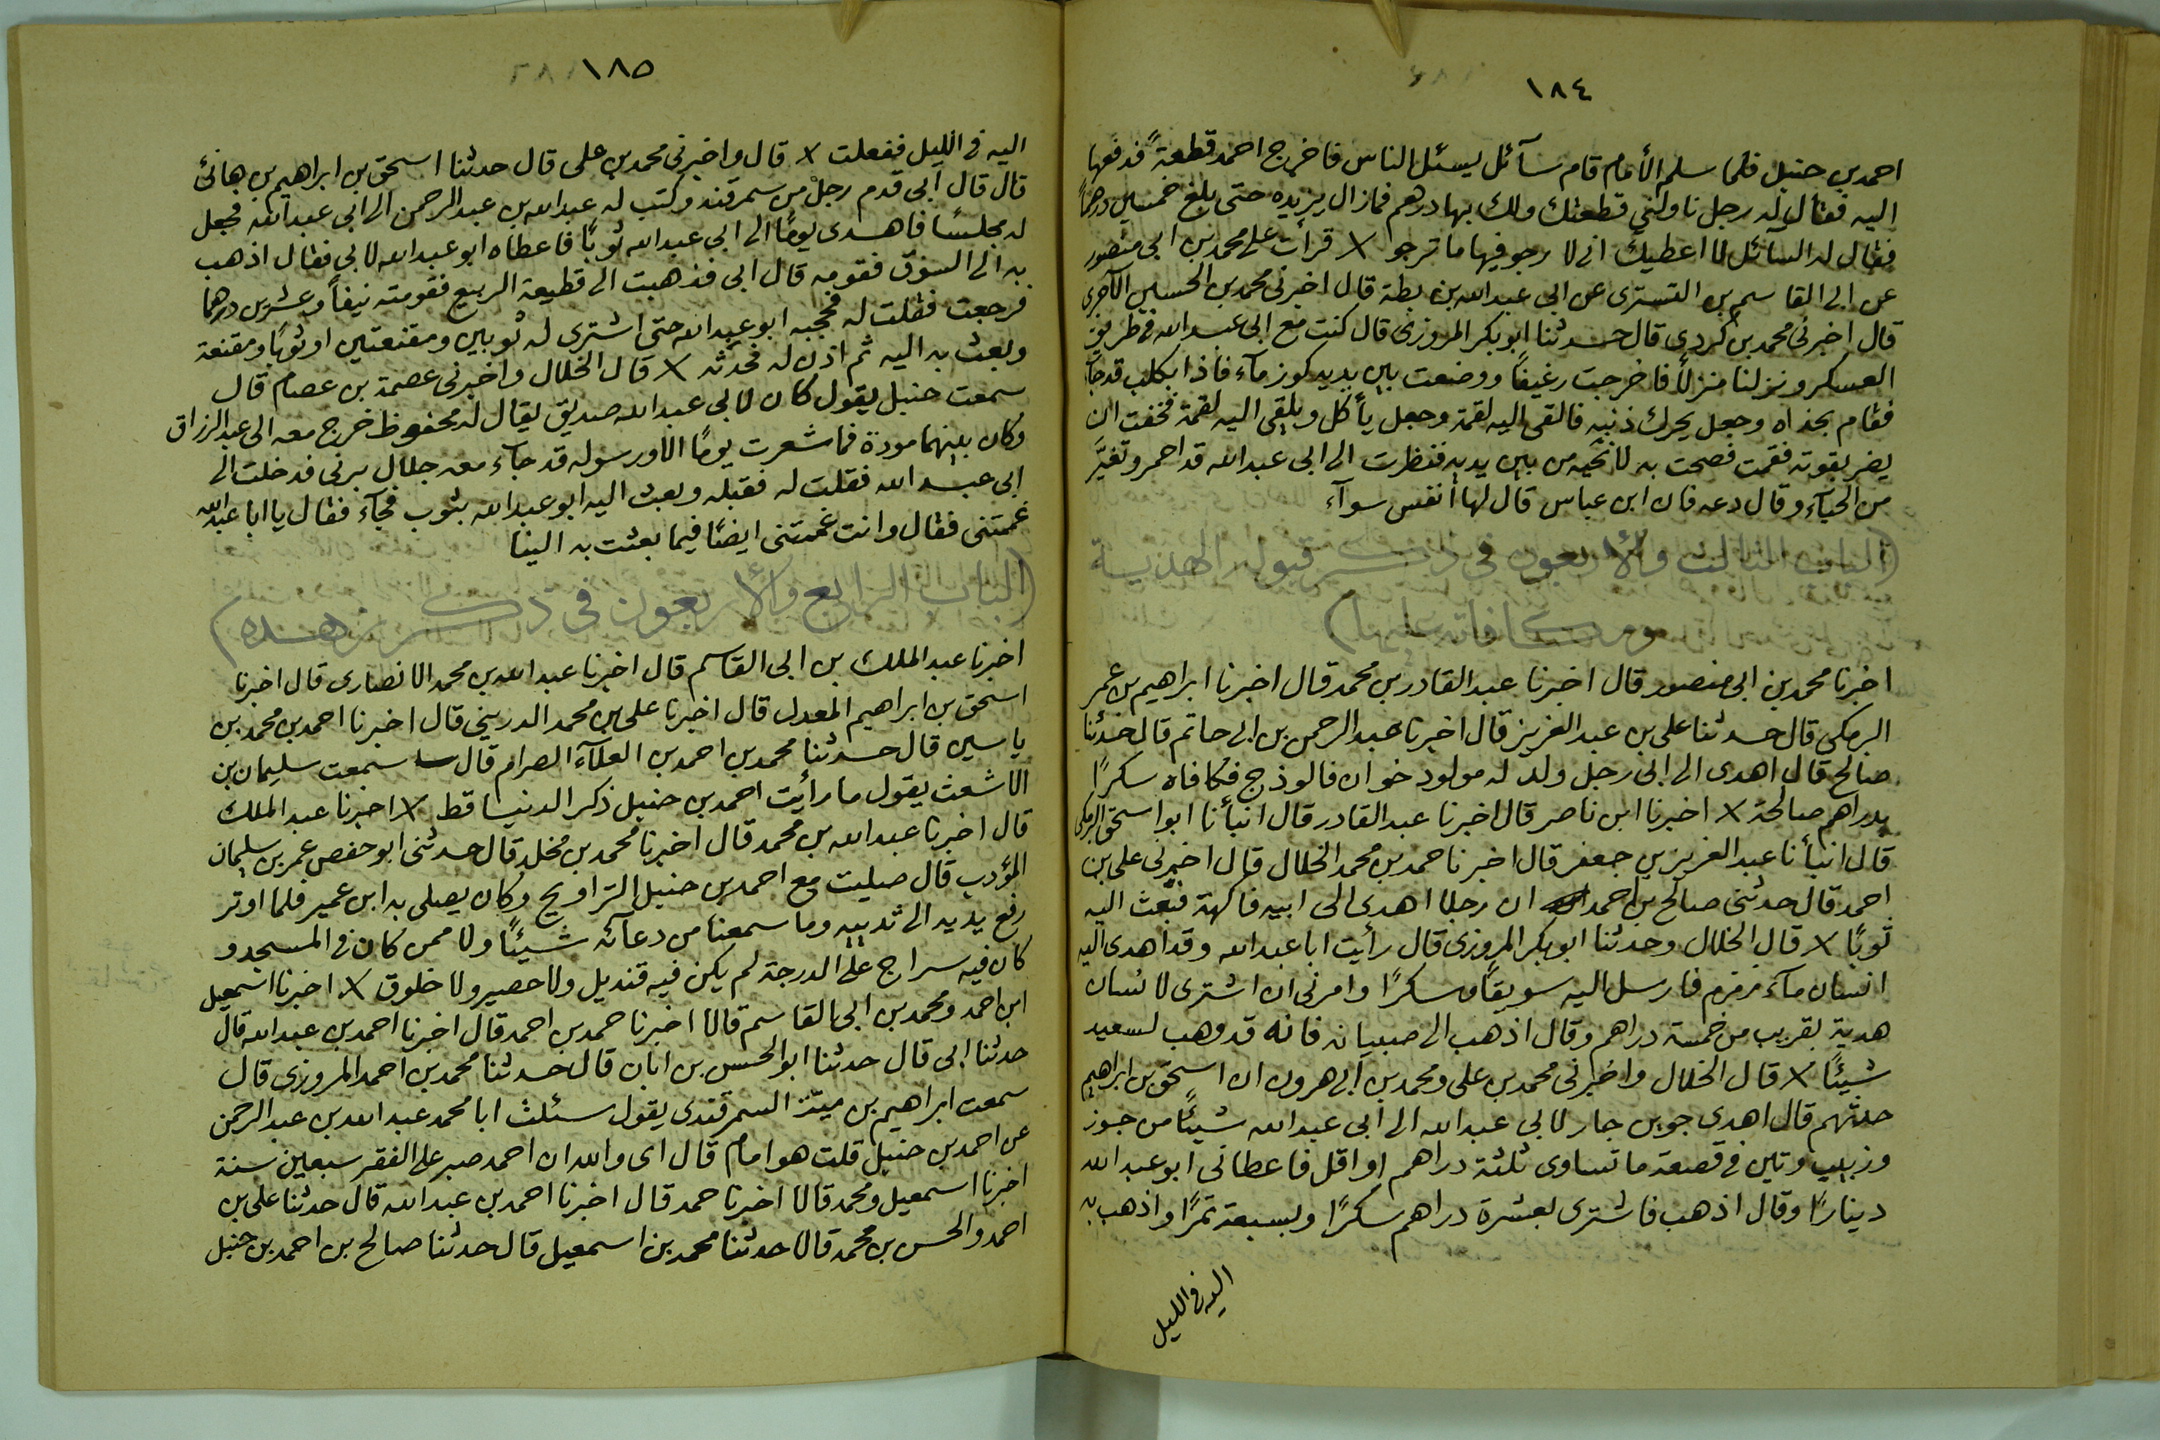 ١٨٤
احمد بن حنبل فلما سلم الأمام قام سآئل يسئل الناس فاخرج احمد قطعةً فدفعها
اليه فقال له رجل ناولني قطعتك ولك بها درهم فمازال يزيده حتى بلغ خمسين درهمًا
فقال له السآئل لا اعطيك انى لا رجو فيها ما ترجو X قرأت على محمد بن ابى منصور
عن ابى القاسم بن التسترى عن ابى عبدالله بن بطة قال اخبرنى محمد بن الحسين الآجرى
قال اخبرنى محمد بن كردى قال حدثنا ابو بكر المروزى قال كنت مع ابى عبدالله فى طريق
العسكر ونزلنا منزلاً فاخرجت رغيفًا ووضعت بين يديه كوز مآء فاذا بكلب قد جآء
فقام بحذاه وجعل يحرك ذنبه فالقى اليه لقمة وجعل يأكل ويلقى اليه لقمة فخفت ان
يضر بقوته فقمت فصحت به لانحيه من بين يديه فنظرت الى ابى عبدالله قد احمر وتغيَّر
من الحيآء وقال دعه فان ابن عباس قال لها أنفس سوآء
(الباب الثالث والأربعون فى ذكر قبوله الهدية
ومكافاته عليها)
اخبرنا محمد بن ابى منصور قال اخبرنا عبدالقادر بن محمد قال اخبرنا ابراهيم بن عمر
البرمكى قال حدثنا على بن عبدالعزيز قال اخبرنا عبدالرحمن بن ابى حاتم قال حدثنا
صالح قال اهدى الى ابى رجل ولد له مولود خوان فالوذج فكافاه سكرًا
بدراهم صالحة X اخبرنا ابن ناصر قال اخبرنا عبدالقادر قال انبأنا ابو اسحق البرمكى
قال انبأنا عبدالعزيز بن جعفر قال اخبرنا احمد بن محمد الخلال قال اخبرنى على بن
احمد قال حدثنى صالح بن احمد ان رجلا اهدى الى ابيه فاكهة فبعث اليه
ثوبًا X قال الخلال وحدثنا ابو بكر المروزى قال رأيت ابا عبدالله وقد اهدى اليه
انسان مآء زمزم فارسل اليه سويقًا وسكرًا وامرنى ان اشترى لانسان
هدية بقريب من خمسة دراهم وقال اذهب الى صبيانه فانه قد وهب لسعيد
شيئًا X قال الخلال واخبرنى محمد بن على ومحمد بن ابى هرون ان اسحق بن ابراهيم
حدثهم قال اهدى جوين جار لابى عبدالله الى ابى عبدالله شيئًا من جوز
وزبيب وتين فى قصعة ما تساوى ثلثة دراهم او اقل فاعطانى ابو عبدالله
دينارًا وقال اذهب فاشترى بعشرة دراهم سكرًا وبسبعة تمرًا واذهب به
اليه فى الليل
١٨٥
اليه فى الليل ففعلت X قال واخبرنى محمد بن على قال حدثنا اسحق بن ابراهيم بن هانئ
قال قال ابى قدم رجلٌ من سمرقند وكتب له عبدالله بن عبدالرحمن الى ابى عبدالله فجعل
له مجلسًا فاهدى يومًا الى ابى عبدالله ثوبًا فاعطاه ابو عبدالله لابى فقال اذهب
به الى السوق فقومه قال ابى فذهبت الى قطيعة الربيع فقومته نيفًا وعشرين درهمًا
فرجعت فقلت له فحجبه ابو عبدالله حتى اشترى له ثوبين ومقنعتين او ثوبًا ومقنعة
وبعث به اليه ثم اذن له فحدثه X قال الخلال واخبرنى عصمة بن عصام قال
سمعت حنبل يقول كان لابى عبدالله صديق يقال له محفوظ خرج معه الى عبدالرزاق
وكان بينهما مودة فما شعرت يومًا الا ورسوله قد جآء معه جلال برنى فدخلت الى
ابى عبدالله فقلت له فقبله وبعث اليه ابو عبدالله بثوب فجآء فقال يا ابا عبدالله
غممتنى فقال وانت غممتنى ايضًا فيما بعثت به الينا
(الباب الرابع والأربعون فى ذكر زهده)
اخبرنا عبدالملك بن ابى القاسم قال اخبرنا عبدالله بن محمد الانصارى قال اخبرنا
اسحق بن ابراهيم المعدل قال اخبرنا على بن محمد الدرينى قال اخبرنا احمد بن محمد بن
ياسين قال حدثنا محمد بن احمد بن العلآء الصرام قال سمعت سليمان بن
الاشعث يقول ما رأيت احمد بن حنبل ذكر الدنيا قط X اخبرنا عبدالملك
قال اخبرنا عبدالله بن محمد قال اخبرنا محمد بن مخلد قال حدثنى ابو حفص عمر بن سليمان
المؤدب قال صليت مع احمد بن حنبل التراويح وكان يصلى به ابن عمير فلما اوتر
رفع يديه الى ثدييه وما سمعنا من دعآئه شيئًا ولا ممن كان فى المسجد و
كان فيه سراج على الدرجة لم يكن فيه قنديل ولا حصير ولا خلوق X اخبرنا اسمعيل
ابن احمد ومحمد بن ابى القاسم قالا اخبرنا حمد بن احمد قال اخبرنا احمد بن عبدالله قال
حدثنا ابى قال حدثنا ابو الحسن بن ابان قال حدثنا محمد بن احمد المروزى قال
سمعت ابراهيم بن السمرقندى يقول سئلت ابا محمد عبدالله بن عبدالرحمن
عن احمد بن حنبل قلت هو امام قال اى والله ان احمد صبر على الفقر سبعين سنة
اخبرنا اسمعيل ومحمد قالا اخبرنا حمد قال اخبرنا احمد بن عبدالله قال حدثنا على بن
احمد والحسن بن محمد قالا حدثنا محمد بن اسمعيل قال حدثنا صالح بن احمد بن حنبل